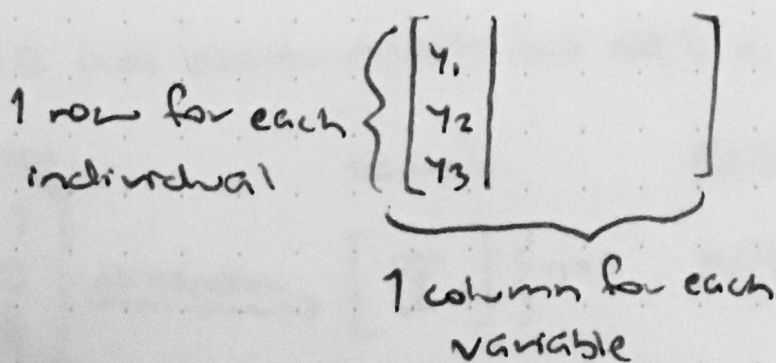 y1
1 row for each
y2
individual
y3
1 column for each
variable